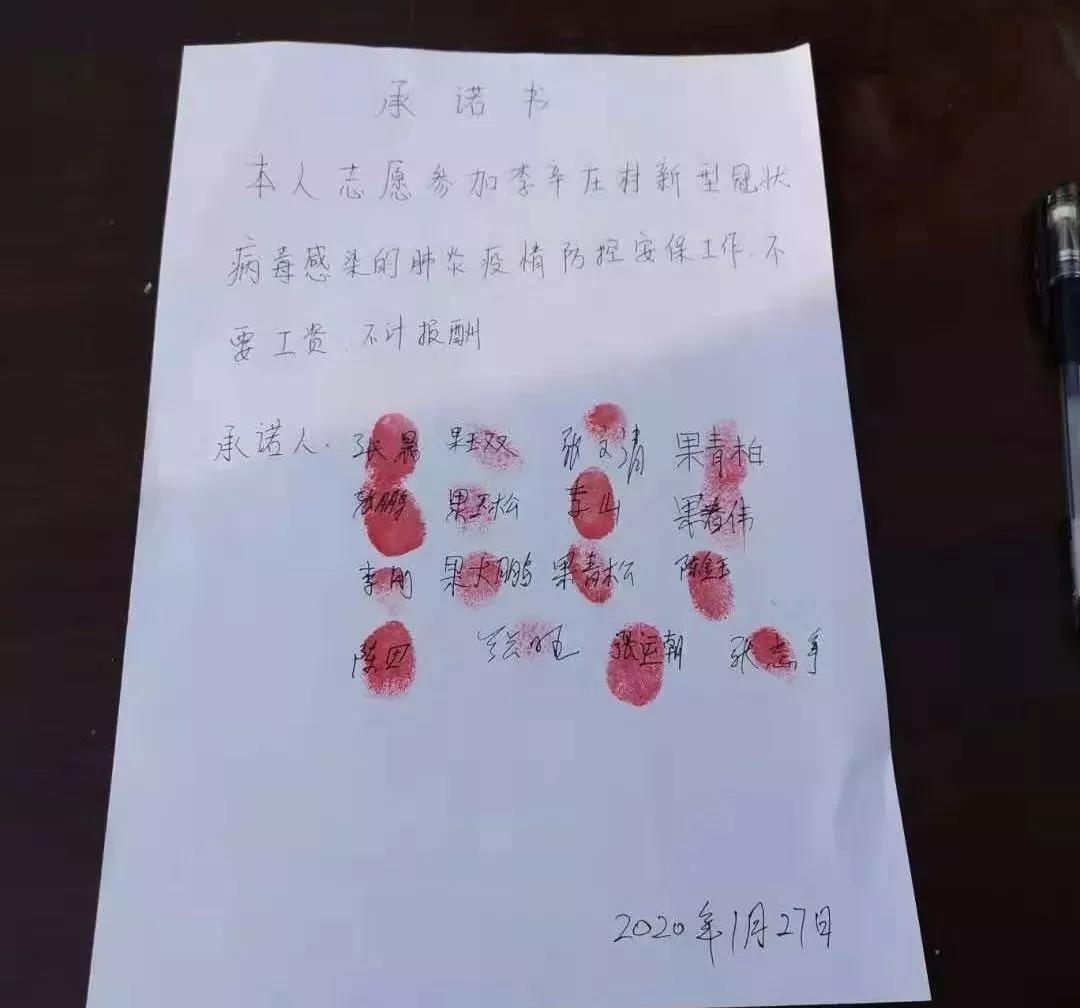 承诺书
本人志愿参加李辛庄村新型冠状
病毒感染的肺炎疫情防控安保工作.不
要工资.不计报酬
承诺人. 张晨 果玉双 张文清 果青柏
张鹏 果玉松 李山 果春伟
李刚 果大鹏 果青松 陈金玉
陈田 张旺 张运朝 张志军
2020年1月27日